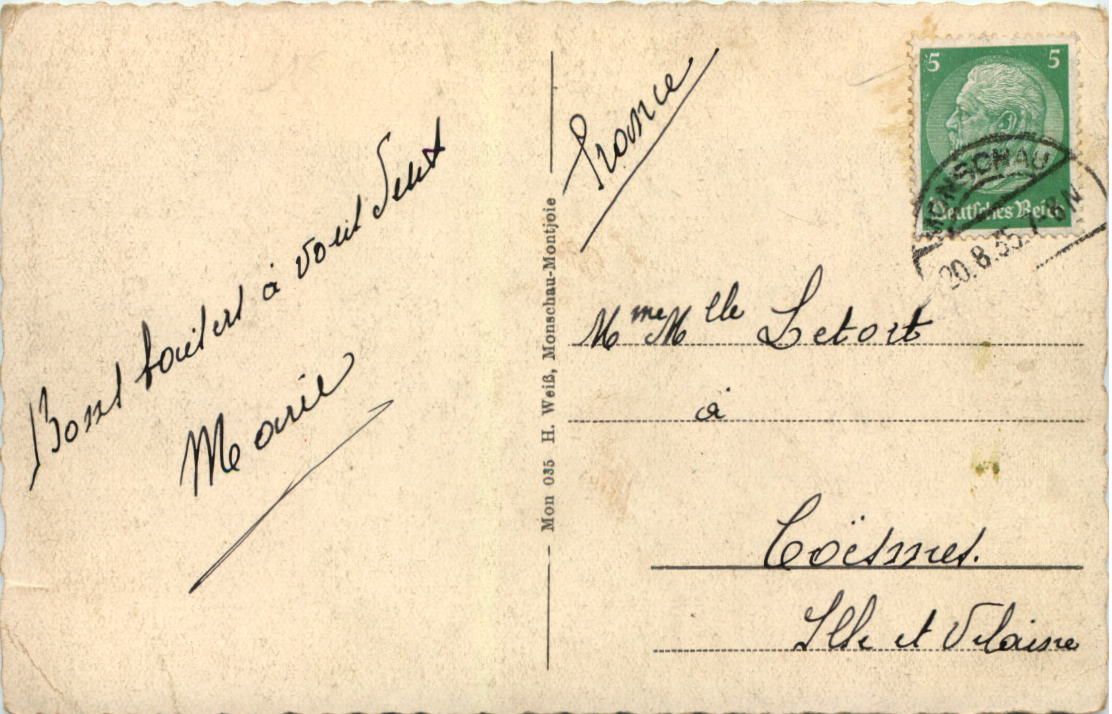 Bons baisers à vous deux
Marie
Mon 035 H. Weiß, Monschau-Montjoie
France
5 5
Deutsches Reich
MONSCHAU
20.8.35.7-8 N
Mme Mlle Letort
à
Coësmes.
Ille et Vilaine